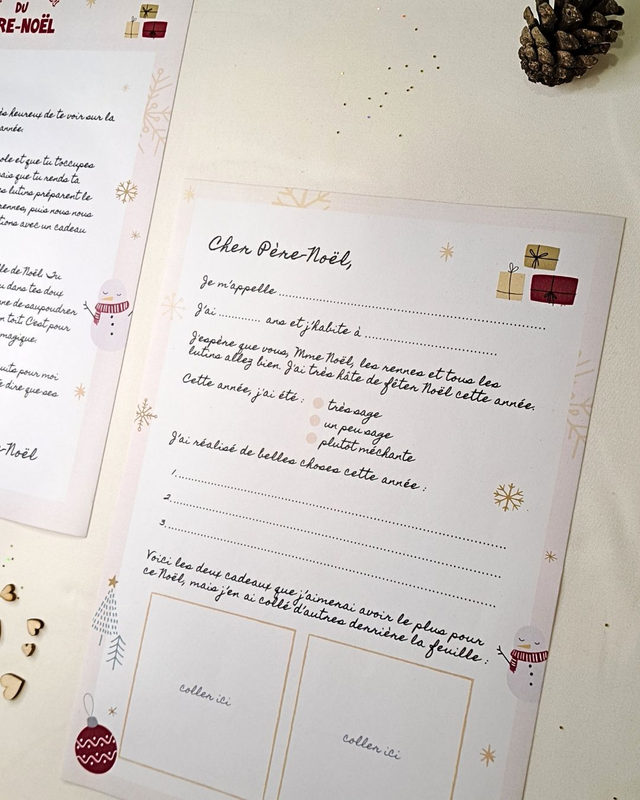 DU
RE-NOËL
ès heureux de te voir sur la
année.
ole et que tu t'occupes
ais que tu rends ta
s lutins préparent le
rennes, puis nous nous
tions avec un cadeau
lle de Noël. Tu
u dans tes doux
ne de saupoudrer
n toit. C'est pour
magique.
uits pour moi
e dire que ses
-Noël
Cher Père-Noël,
Je m'appelle
J'ai ans et j'habite à
J'espère que vous, Mme Noël, les rennes et tous les
lutins allez bien. J'ai très hâte de fêter Noël cette année.
Cette année, j'ai été :
très sage
un peu sage
plutôt méchante
J'ai réalisé de belles choses cette année :
1.
2.
3.
Voici les deux cadeaux que j'aimerai avoir le plus pour
ce Noël, mais j'en ai collé d'autres derrière la feuille :
coller ici
coller ici